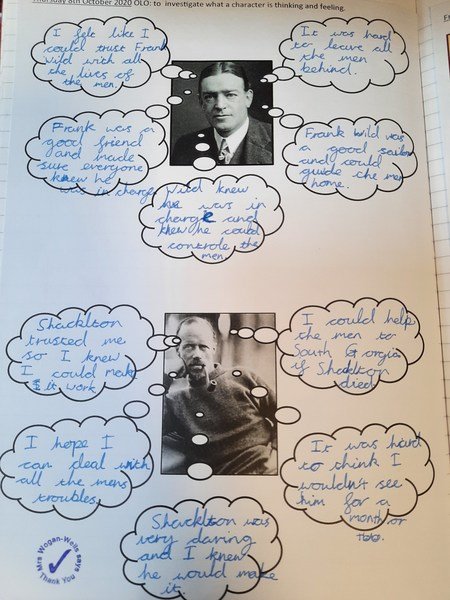 Thursday 8th October 2020 OLO: to investigate what a character is thinking and feeling.
I felt like I
could trust Frank
wild with all
the lives of
the men.
It was hard
to leave all
the men
behind.
Frank was a
good friend
and made
sure everyone
knew he
was in charge
Frank wild was
a good sailor
and could
guide the men
home.
Wild knew
he was in
charge and
knew he could
controle the
men.
Shacklton
trusted me
so I knew
I could make
it work
I could help
the men to
South Gorgia
if Shacklton
died
I hope I
can deal with
all the mens
troubles
It was hard
to think I
wouldn't see
him for a
month or
too.
Shacklton was
very daring
and I knew
he would make
it.
Mrs Wogan-Wells says
Thank You